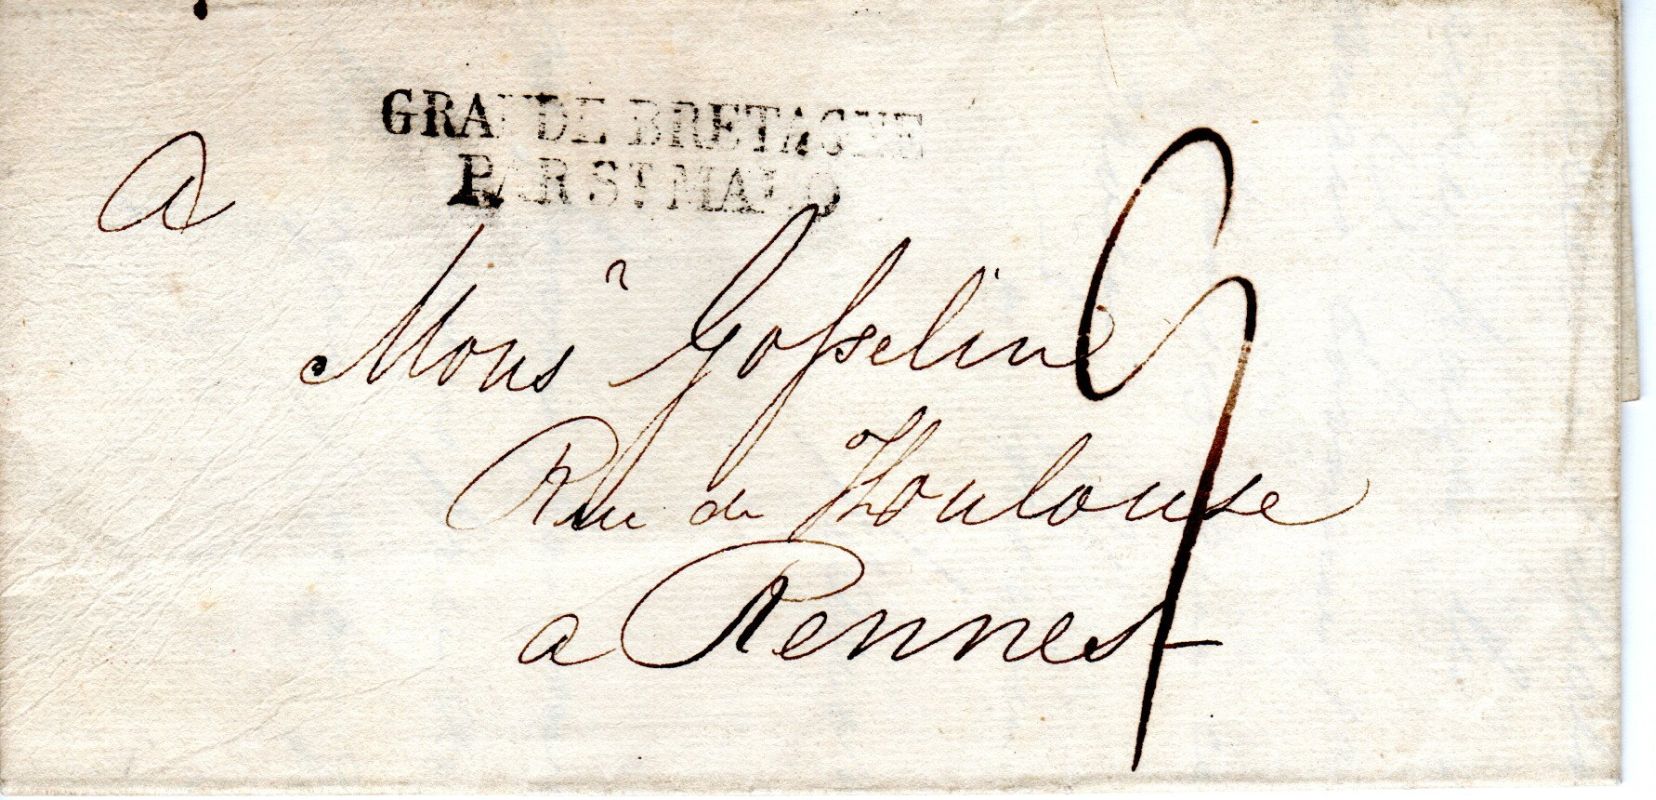 GRANDE BRETAGNE
PAR ST MALO
a
Monsr Gosseline
Rue de Toulouse
a Rennes